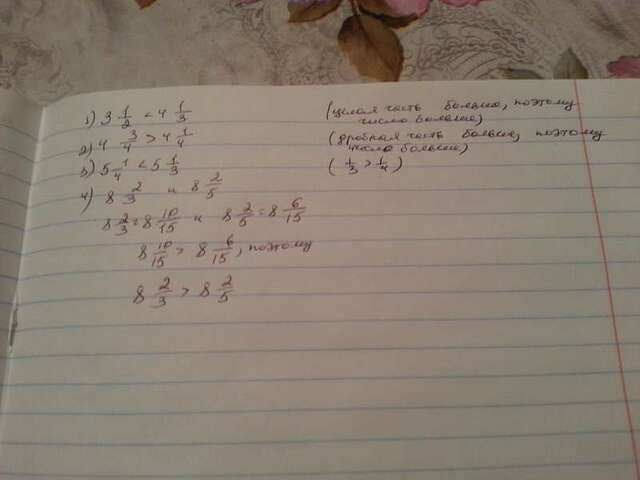 1) 3 1/2 < 4 1/3 (целая часть больше, поэтому
число больше)
2) 4 3/4 > 4 1/4 (дробная часть больше, поэтому
число больше)
3) 5 1/4 < 5 1/3 (1/3 > 1/4)
4) 8 2/3 и 8 2/5
8 2/3 = 8 10/15 и 8 2/5 = 8 6/15
8 10/15 > 8 6/15, поэтому
8 2/3 > 8 2/5